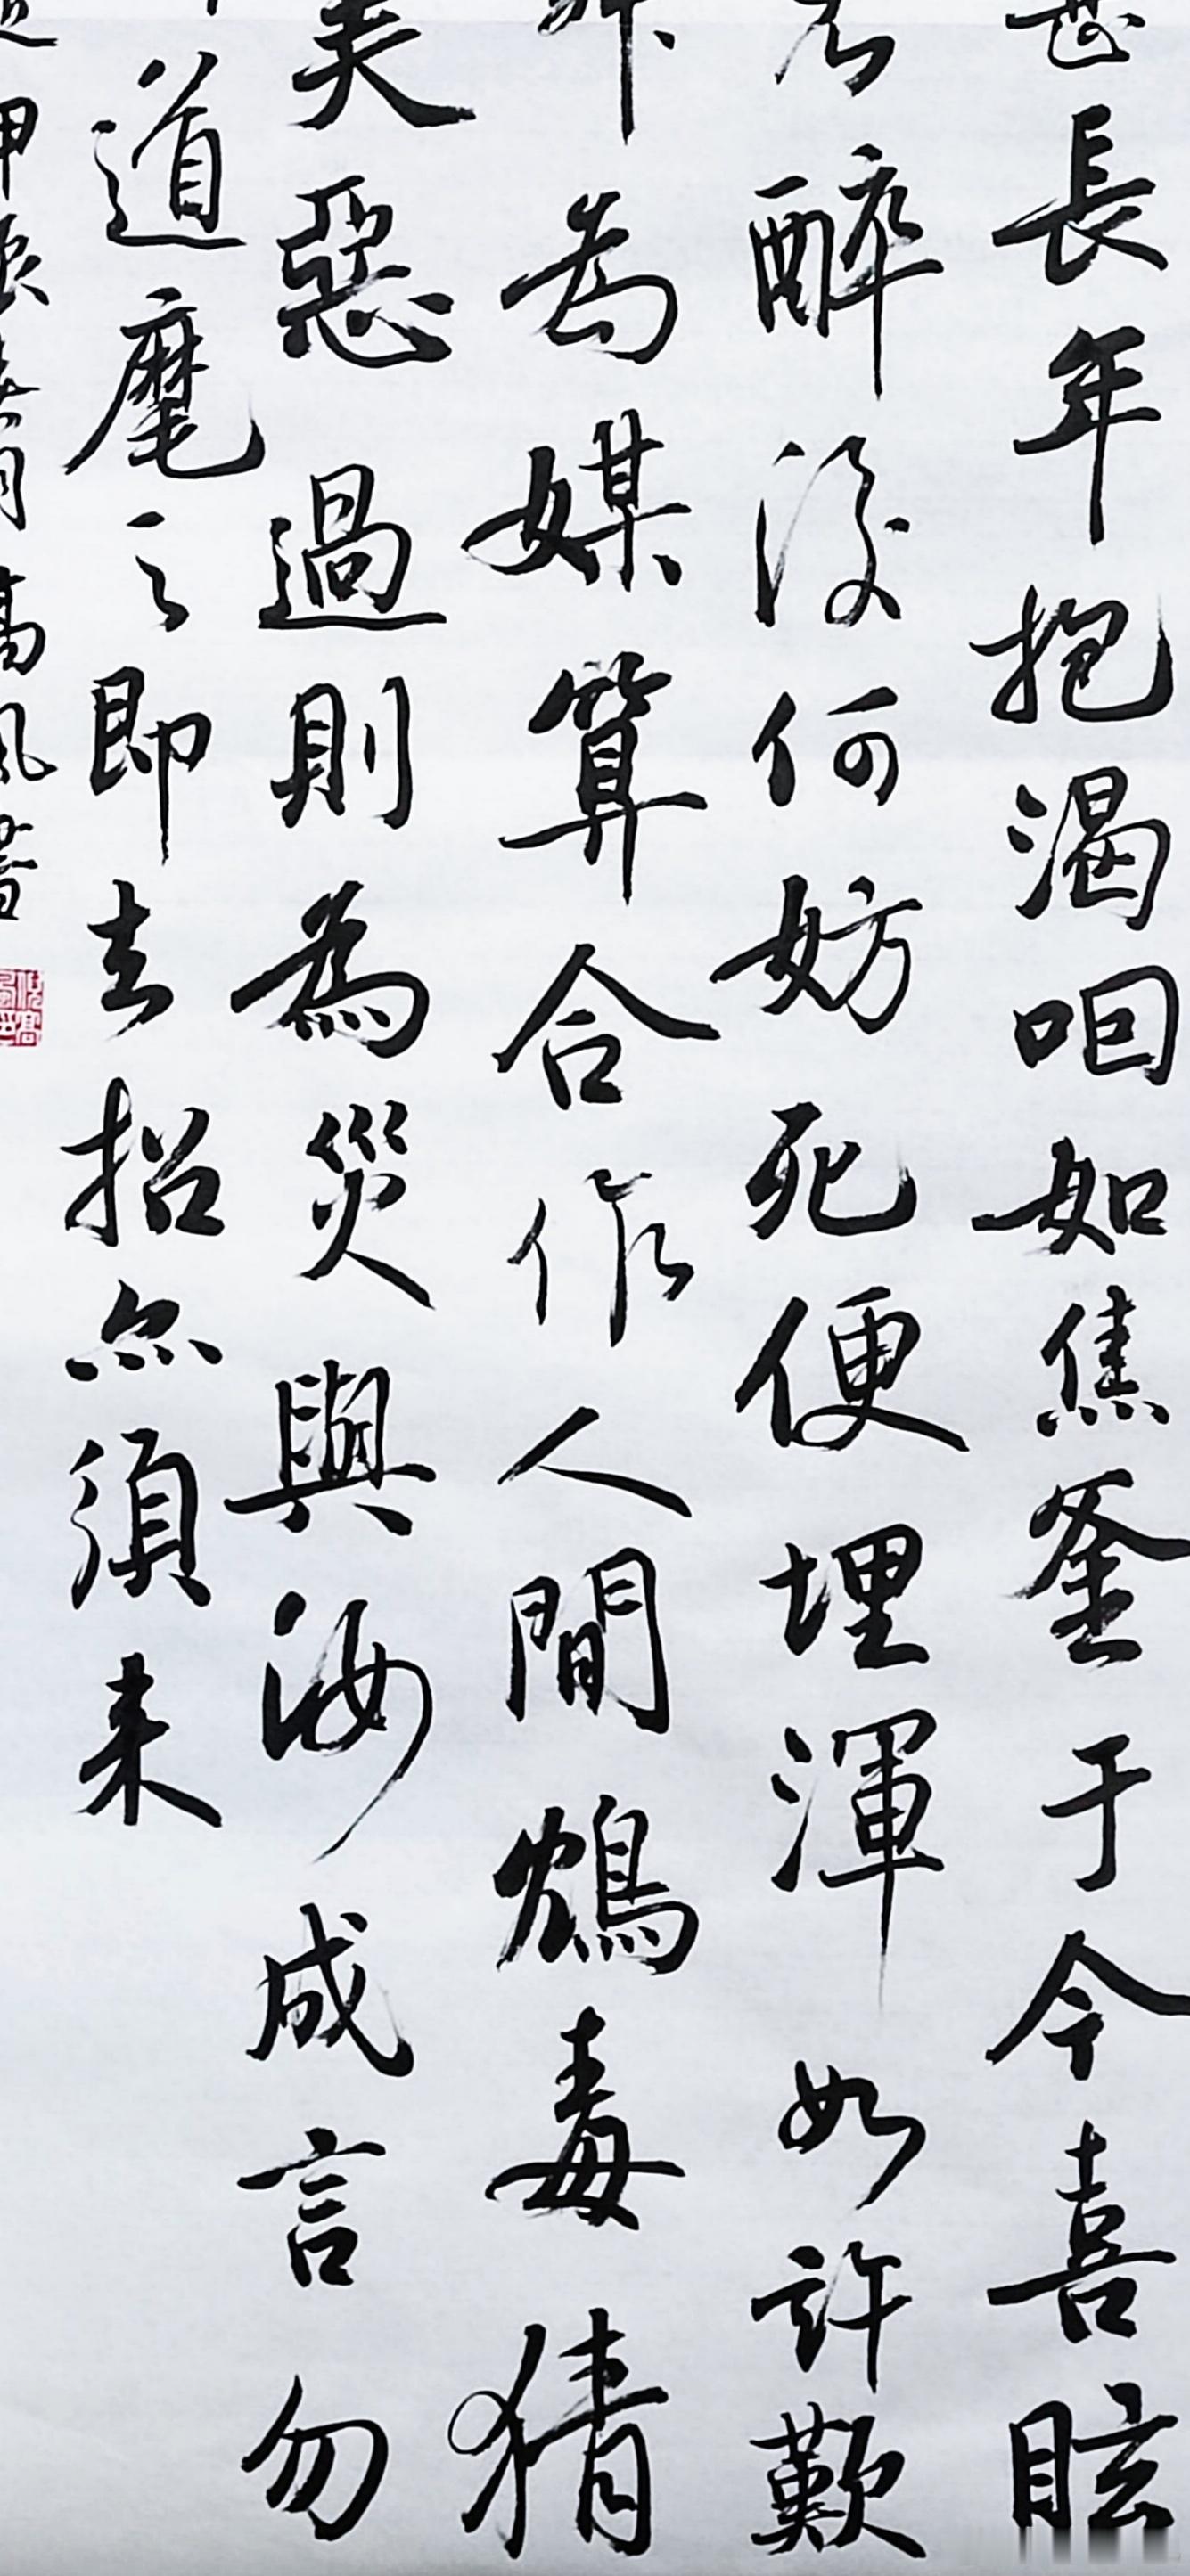 甚長年抱渴咽如焦釜于今喜眩
者醉後何妨死便埋渾如許歎
舞為媒算合作人間鴆毒猜
美惡過則為災與汝成言勿
道麾之即去招亦須来
甲辰春月高風書